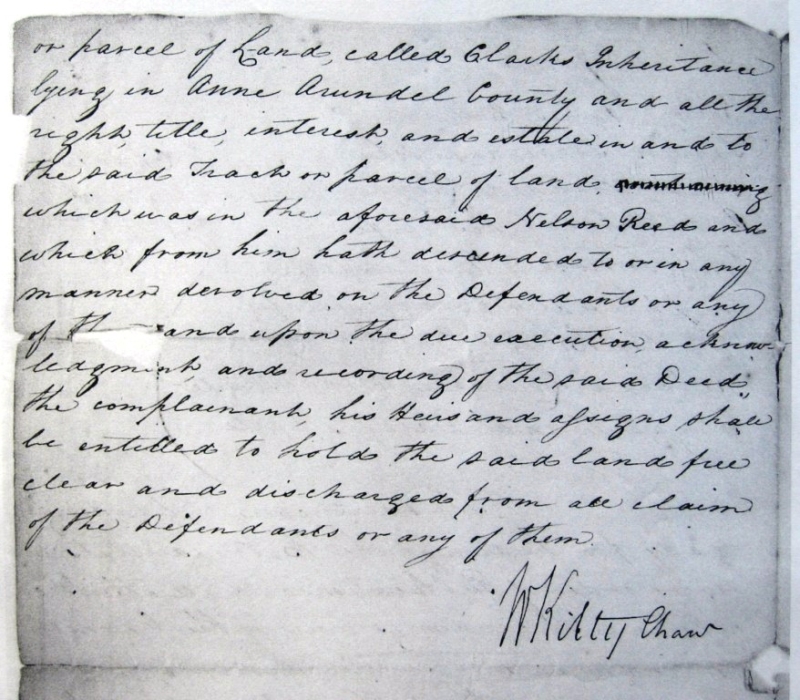 or parcel of Land, called Clarks Inheritance
lying in Anne Arundel County and all the
right, title, interest, and estate in and to
the said Track or parcel of land,
which was in the aforesaid Nelson Reed and
which from him hath descended to or in any
manner devolved on the Defendants or any
of th and upon the due execution, acknow
ledgment, and recording of the said Deed,
the complainant, his Heirs and assigns shall
be entitled to hold the said land free
clear and discharged from all claim
of the Defendants or any of them
W Kilty Chanr